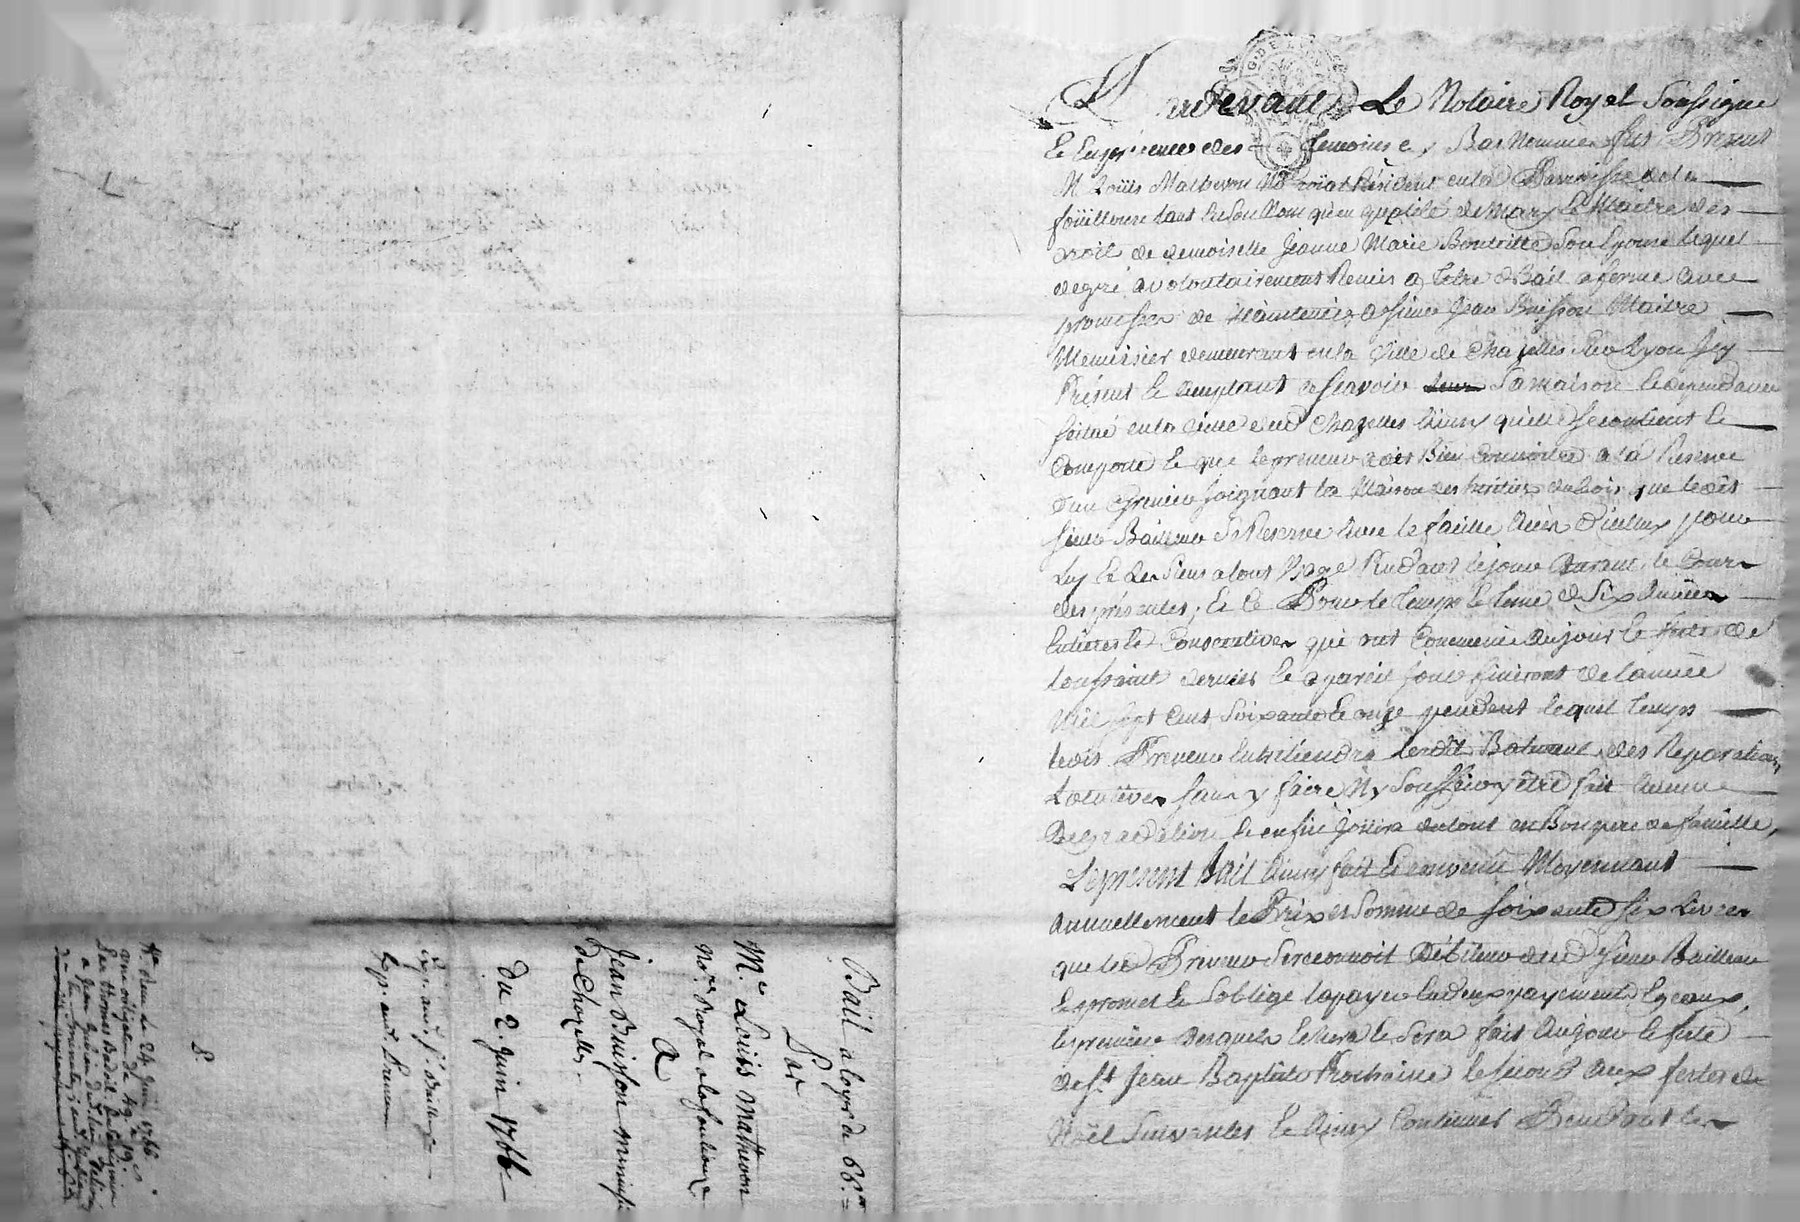 G. DE LYON
Pardevant Le Notaire Royal Soussigne
Et En présence des temoins cy Bas Nommés fut Present
M. Loüis Matheron No.re Roïal Résident en la Parroisse de la
foüillouse tant de son Nom qu'en qualité de Mary et Maitre des
droit de demoiselle Jeanne Marie Son Epouse lequel
de gré a volontairement Remis a titre de Bail a ferme avec
promesses de Maintenir a sieur Jean Buisson Maitre
Menuisier demeurant en la Ville de Chazelles sur Lyon Icy
Présent et acceptant a sçavoir Sa maison et dependances
scitué en la ville dud Chazelles Ainsy qu'elle se contient et
Comporte et que le preneur a dit Bien Connoitre a la Reserve
d'un Grenier joignant la Maison des heritiers dubois que ledit
sieur Bailleur Se Reserve avec la faculté pour
Luy et les Siens a tout Usage Pendant le jour durant le Cour
des présentes, Et ce Pour le temps et terme de Six Années
Entieres et Consecutives qui ont Commencé au jour et fete de
toussaint dernier et a pareil jour finiront de l'année
Mil sept cent Soixante et onze pendent lequel temps
ledit Preneur Entretiendra lesdit Batiment des Reparations
Locatives sans y faire Ny Souffrir y être fait Aucune
Degradation et enfin Joüira du tout en Bon pere de famille,
Le present Bail Ainsy fait et convenu Moyennant
annuellement le Prix et Somme de Soixante six Livres
que led Preneur Se reconnoit Débiteur aud Sieur Bailleur
Et promet et S'oblige la payer En deux payements Egeaux,
le premier Desquels Echera et Sera fait Au jour et fete
de St Jean Baptiste Prochaine le second aux fetes de
Noël Suivantes Et Ainsy Continuer Pendant les
Bail a loyer de 66.#
Par
M.e Loüis Matheron
No.re Royal a la fouliouze
A
Jean Buisson menuisie
de Chazelles
Du 2. juin 1766
Exp. au d. S.r Bailleur
Exp. aud. Preneur
8
N.a dem. Le 24 Juin 1766